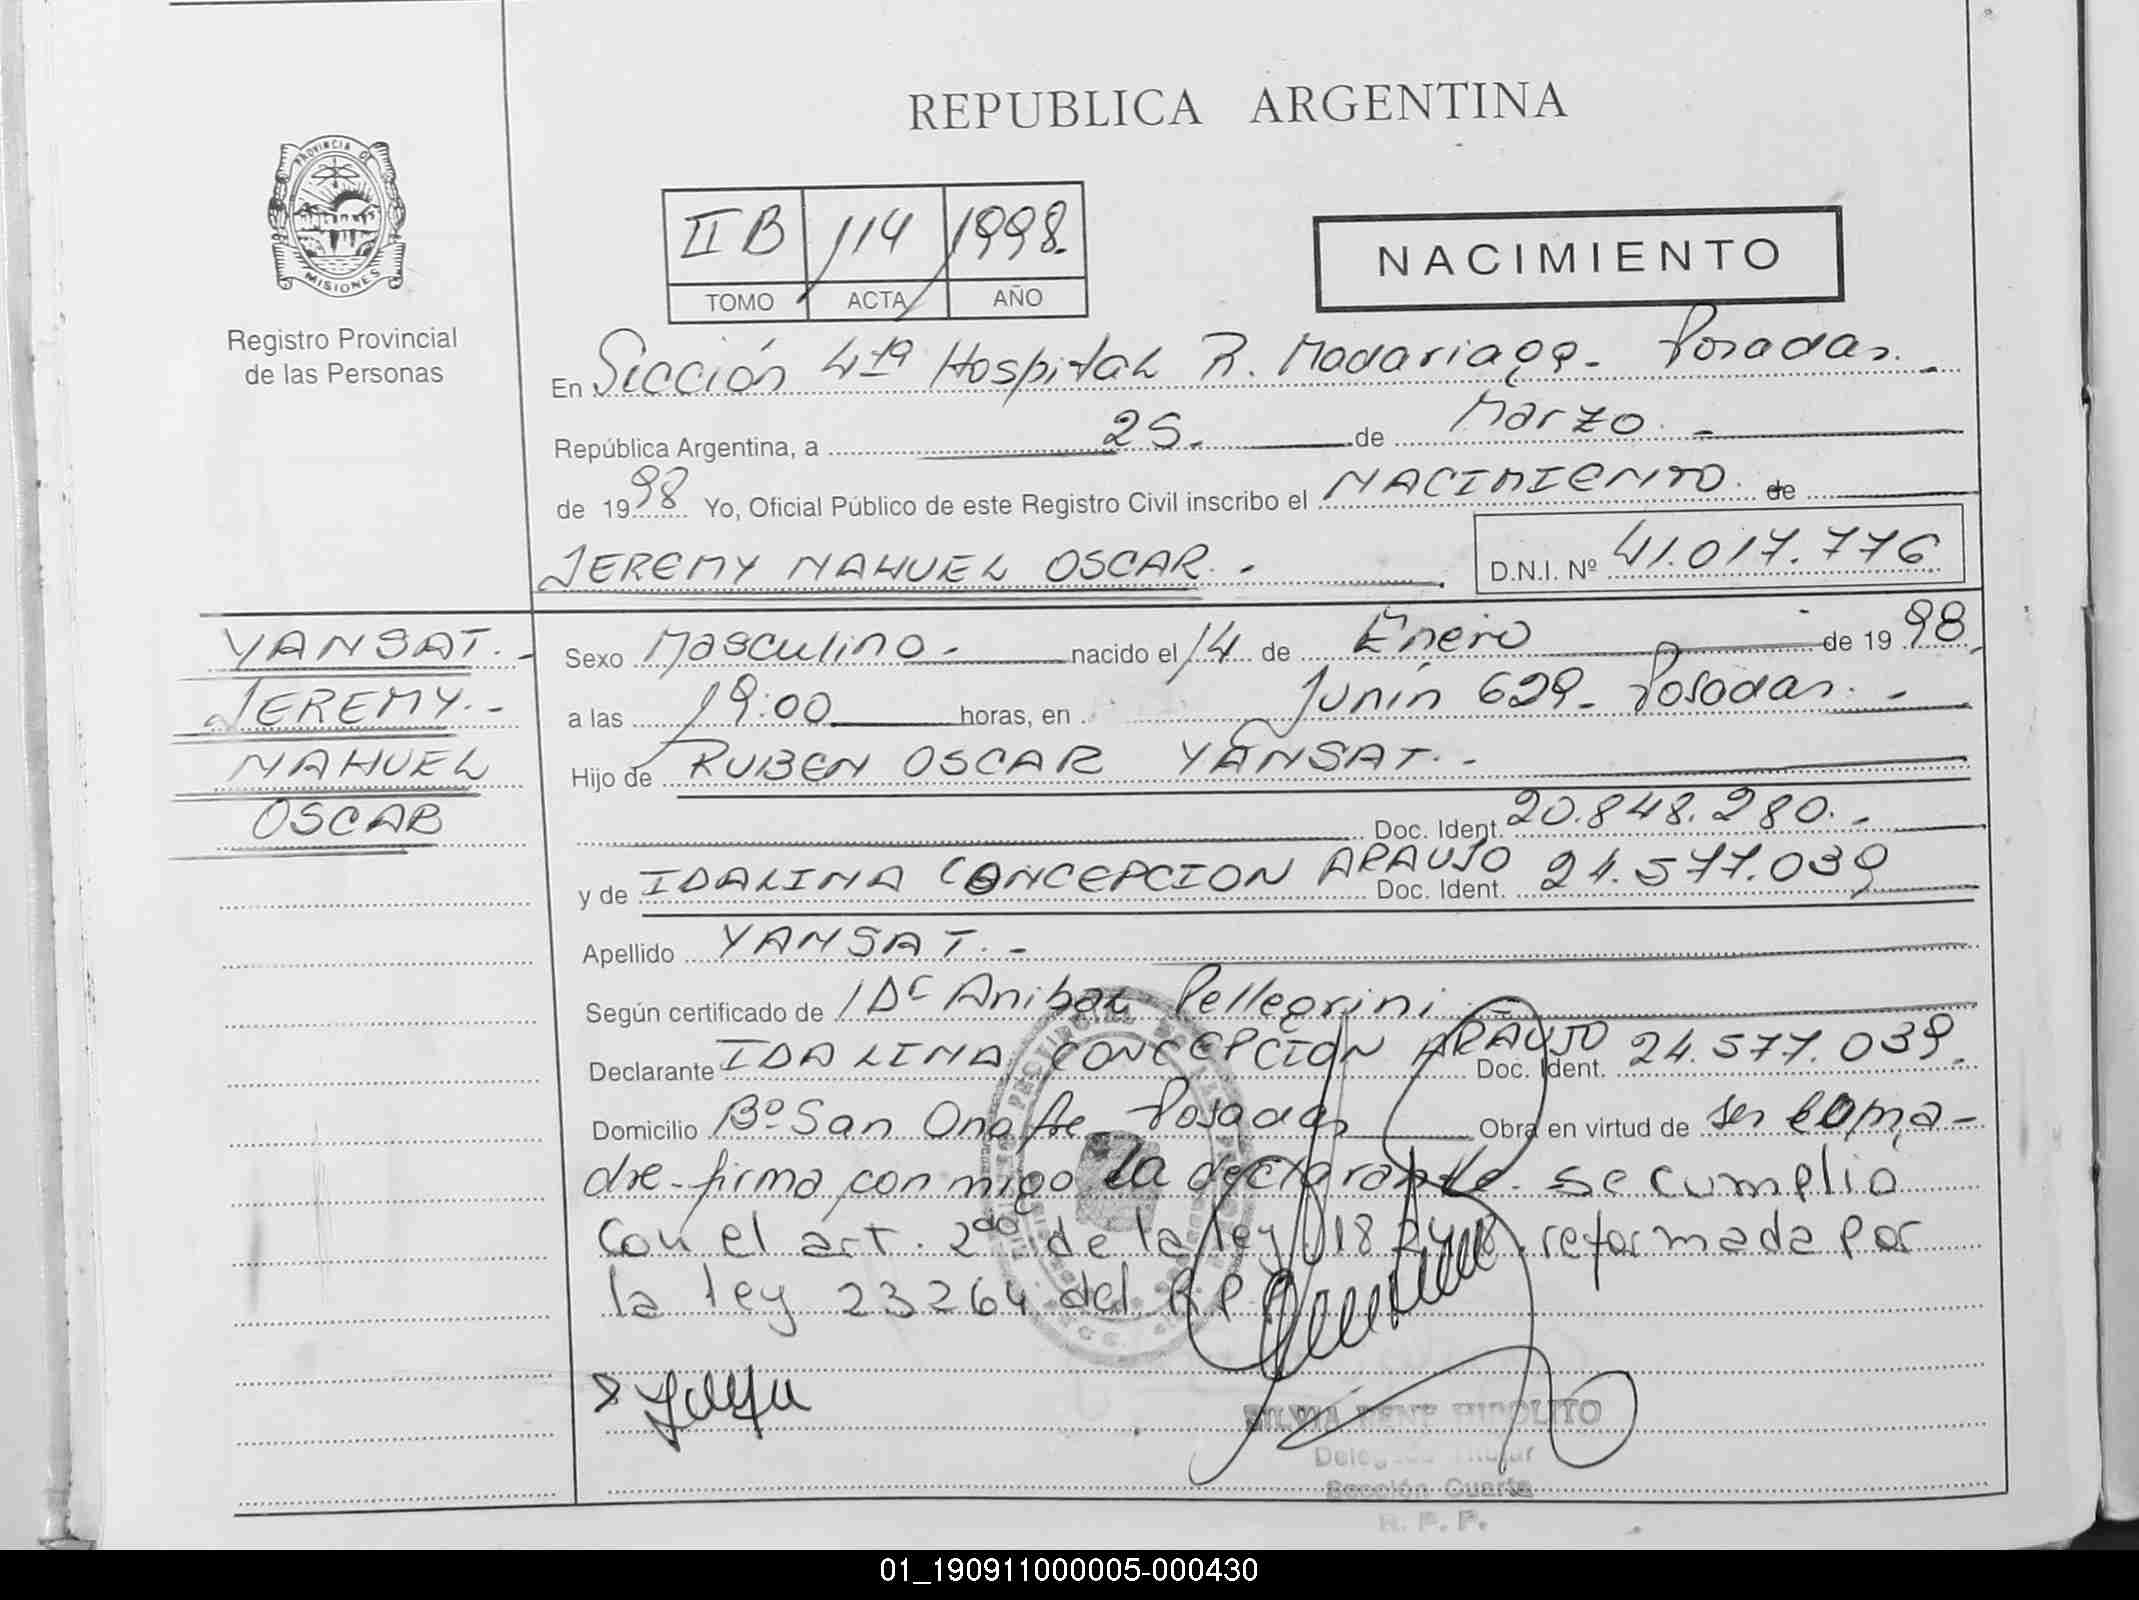 REPUBLICA ARGENTINA
PROVINCIA DE
MISIONES
Registro Provincial
de las Personas
II B 114 1998.
TOMO ACTA AÑO
NACIMIENTO
En Sección 4ta Hospital R. Madariaga - Posadas. -
República Argentina, a 25. de Marzo. -
de 1998 Yo, Oficial Público de este Registro Civil inscribo el NACIMIENTO. de
JEREMY NAHUEL OSCAR. - D.N.I. Nº 41.017.776
YANSAT. -
JEREMY. -
NAHUEL
OSCAR
Sexo Masculino - nacido el 14 de Enero de 1998
a las 19:00 horas, en Junín 629 - Posadas. -
Hijo de RUBEN OSCAR YANSAT. -
Doc. Ident. 20.848.280. -
y de IDALINA CONCEPCION ARAUJO Doc. Ident. 24.577.039
Apellido YANSAT. -
Según certificado de Dr Anibal Pellegrini
Declarante IDALINA CONCEPCION ARAUJO Doc. Ident. 24.577.039.
Domicilio Bº San Onofre - Posadas Obra en virtud de ser la ma-
dre - firma conmigo la declarante - se cumplió
con el art. 2do de la ley 18248 reformada por
la ley 23264 del R P
SILVIA IRENE HIPOLITO
Delegada Titular
Sección Cuarta
R. P. P.
01_190911000005-000430